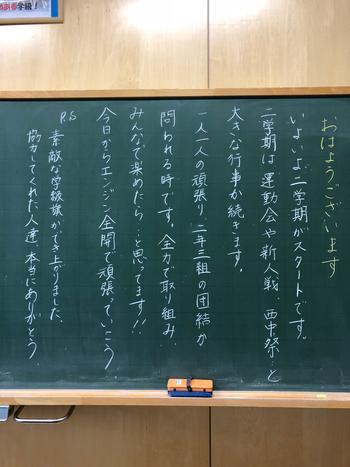 学級!
おはようございます
いよいよ二学期がスタートです。
二学期は運動会や新人戦、西中祭…と
大きな行事が続きます。
一人一人の頑張り、二年三組の団結が
問われる時です。全力で取り組み、
みんなで楽めたら…と思ってます!!
今日からエンジン全開で頑張っていこう
P.S
素敵な学級旗ができ上がりました。
協力してくれた人達、本当にありがとう